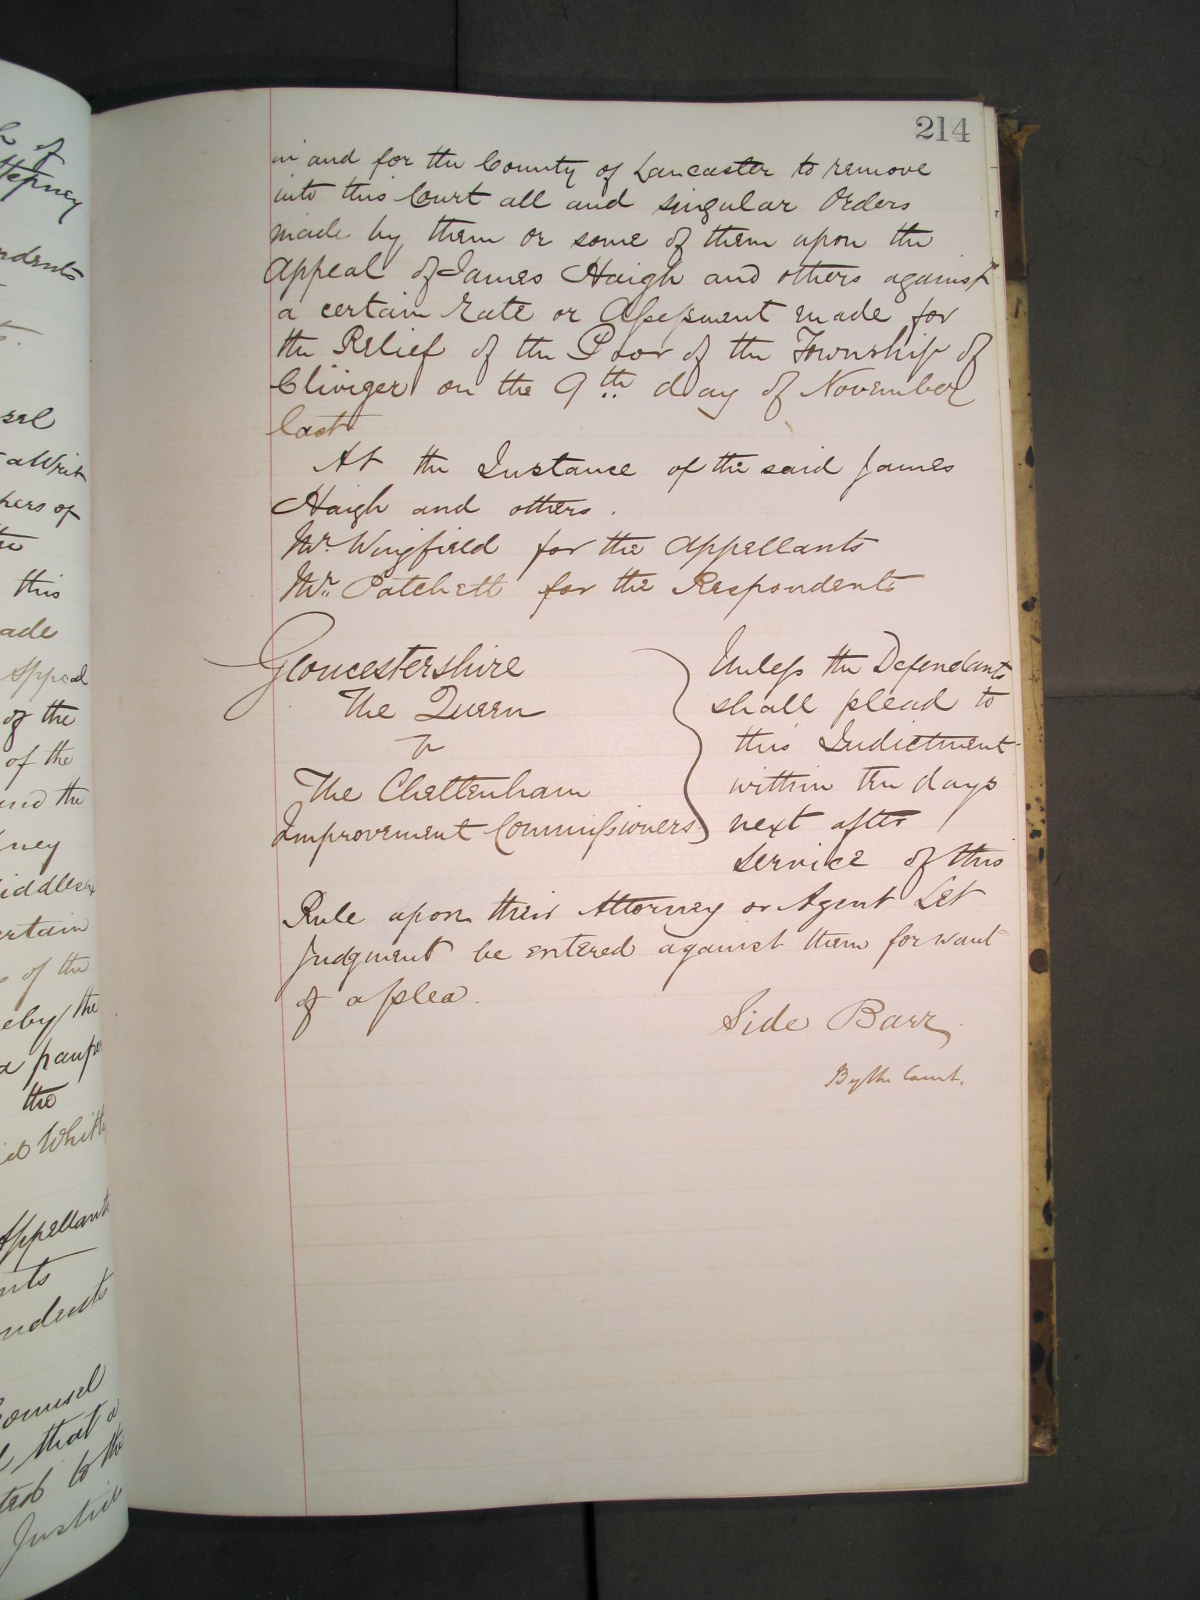 h of
Stepney
ndents
sel
a Writ
pers of
the
this
ade
Appeal
of the
of the
and the
ney
iddlesex
ertain
s of the
eby the
a pauper
the
Appellants
nts
ndents
Counsel
that a
to the
Justice
214
in and for the County of Lancaster to remove
into this Court all and singular Orders
made by them or some of them upon the
Appeal of James Haigh and others against
a certain Rate or Assessment made for
the Relief of the Poor of the Township of
Cliviger on the 9th day of November
last
At the Instance of the said James
Haigh and others.
Mr. Wingfield for the Appellants
Mr. Patchett for the Respondents
Gloucestershire
The Queen
v
The Cheltenham
Improvement Commissioners
Unless the Defendants
shall plead to
this Indictment
within ten days
next after
service of this
Rule upon their Attorney or Agent Let
Judgment be entered against them for want
of a plea.
Side Barr
By the Court.